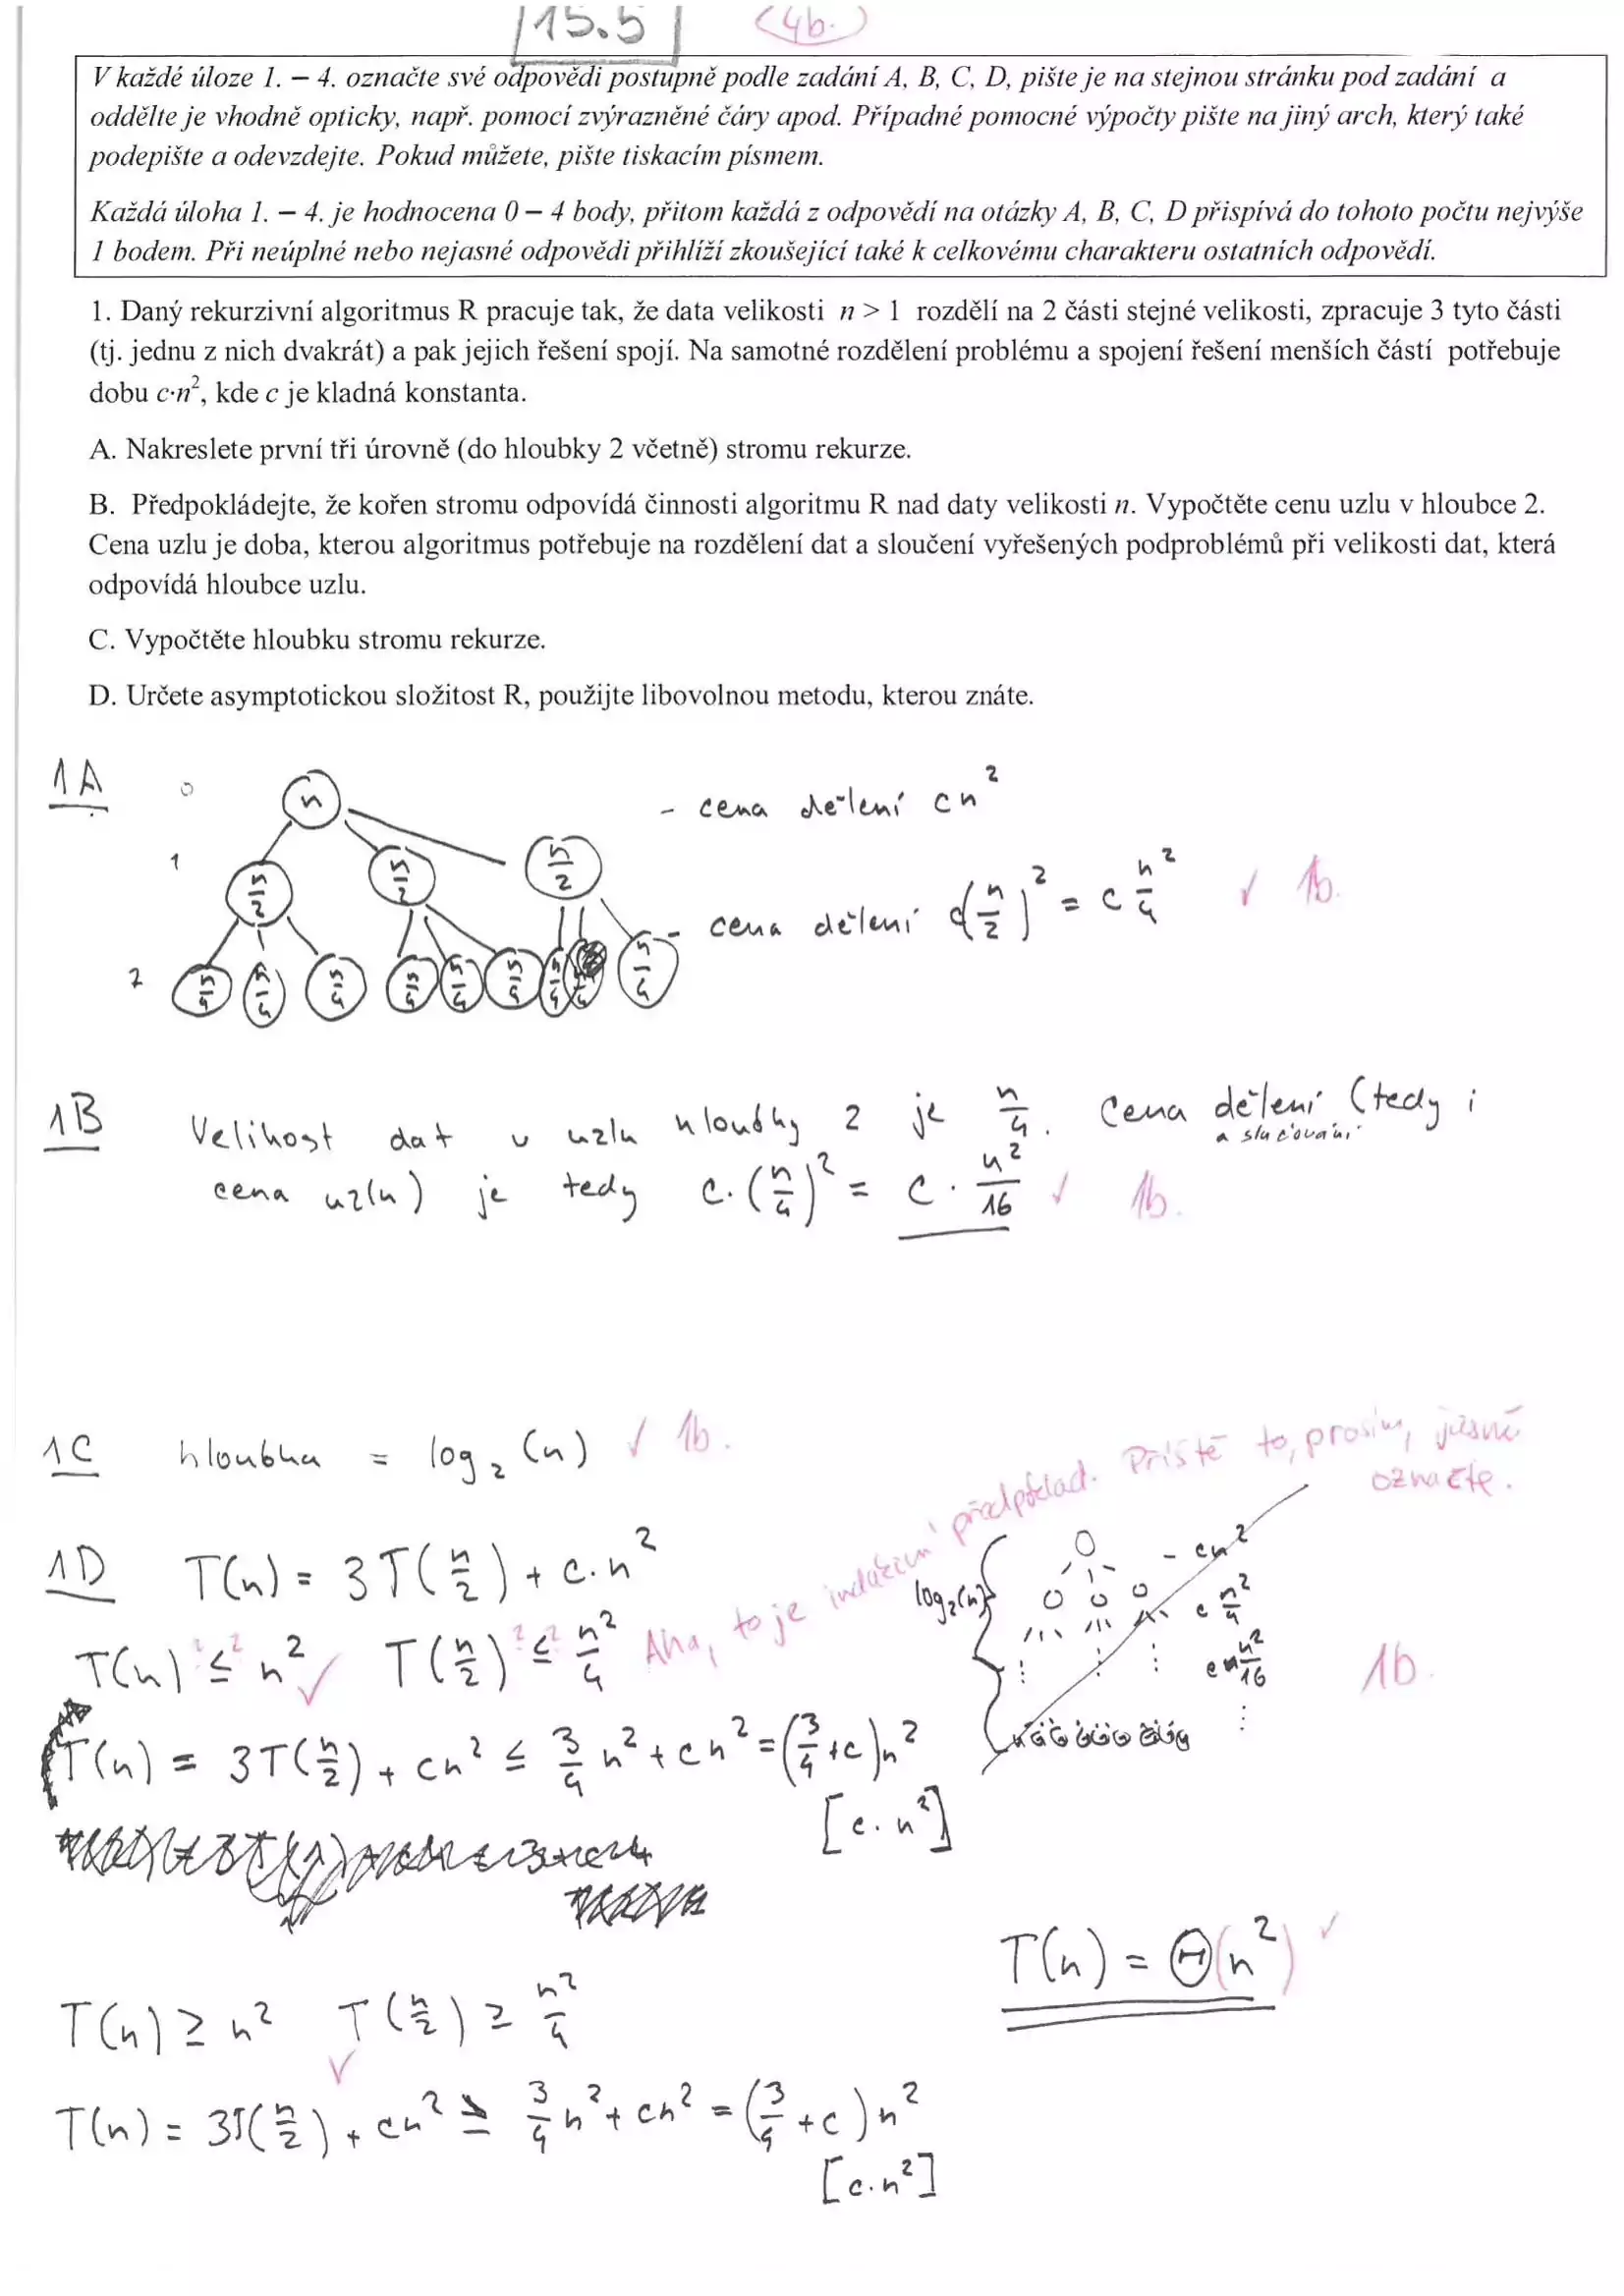 15.5 (4b.)
V každé úloze 1. – 4. označte své odpovědi postupně podle zadání A, B, C, D, pište je na stejnou stránku pod zadání a
oddělte je vhodně opticky, např. pomocí zvýrazněné čáry apod. Případné pomocné výpočty pište na jiný arch, který také
podepište a odevzdejte. Pokud můžete, pište tiskacím písmem.
Každá úloha 1. – 4. je hodnocena 0 – 4 body, přitom každá z odpovědí na otázky A, B, C, D přispívá do tohoto počtu nejvýše
1 bodem. Při neúplné nebo nejasné odpovědi přihlíží zkoušející také k celkovému charakteru ostatních odpovědí.
1. Daný rekurzivní algoritmus R pracuje tak, že data velikosti n > 1 rozdělí na 2 části stejné velikosti, zpracuje 3 tyto části
(tj. jednu z nich dvakrát) a pak jejich řešení spojí. Na samotné rozdělení problému a spojení řešení menších částí potřebuje
dobu c·n², kde c je kladná konstanta.
A. Nakreslete první tři úrovně (do hloubky 2 včetně) stromu rekurze.
B. Předpokládejte, že kořen stromu odpovídá činnosti algoritmu R nad daty velikosti n. Vypočtěte cenu uzlu v hloubce 2.
Cena uzlu je doba, kterou algoritmus potřebuje na rozdělení dat a sloučení vyřešených podproblémů při velikosti dat, která
odpovídá hloubce uzlu.
C. Vypočtěte hloubku stromu rekurze.
D. Určete asymptotickou složitost R, použijte libovolnou metodu, kterou znáte.
1A 0 n - cena dělení cn²
1 n/2 n/2 n/2 - cena dělení c(n/2)² = c n²/4 ✓ 1b.
2 n/4 n/4 n/4 n/4 n/4 n/4 n/4 n/4 n/4
1B Velikost dat v uzlu hloubky 2 je n/4. Cena dělení (tedy i
a slučování
cena uzlu) je tedy c·(n/4)² = c · n²/16 ✓ 1b.
1C hloubka = log₂(n) ✓ 1b.
Aha, to je indukční předpoklad. Příště to, prosím, jasně
označte.
1D T(n) = 3T(n/2) + c·n²
log₂(n) - cn²
c n²/4
c n²/16
T(n) ≤ n² ✓ T(n/2) ≤ n²/4 1b.
T(n) = 3T(n/2) + cn² ≤ 3/4 n² + cn² = (3/4 + c)n²
[c·n²]
T(n) = Θ(n²) ✓
T(n) ≥ n² T(n/2) ≥ n²/4
✓
T(n) = 3T(n/2) + cn² ≥ 3/4 n² + cn² = (3/4 + c)n²
[c·n²]